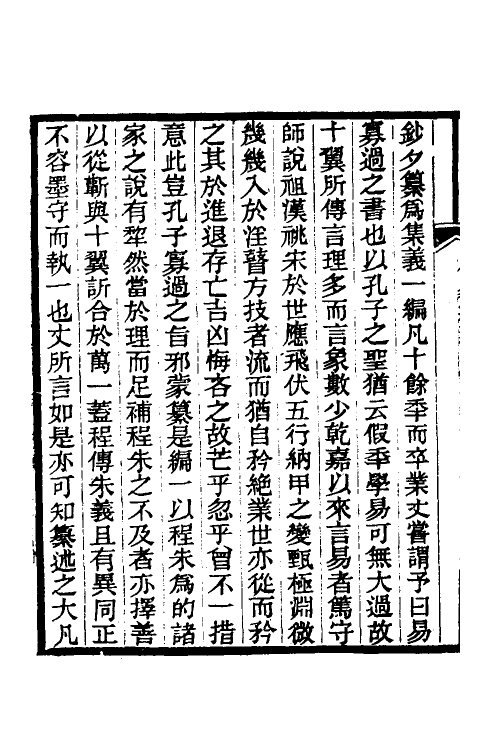 鈔夕纂爲集義一編凡十餘年而卒業丈嘗謂予曰易
寡過之書也以孔子之聖猶云假年學易可無大過故
十翼所傳言理多而言象數少乾嘉以來言易者篤守
師說祖漢祧宋於世應飛伏五行納甲之變甄極淵微
幾幾入於淫瞽方技者流而猶自矜絶業世亦從而矜
之其於進退存亡吉凶悔吝之故芒乎忽乎曾不一措
意此豈孔子寡過之旨邪蒙纂是編一以程朱爲的諸
家之說有犂然當於理而足補程朱之不及者亦擇善
以從蘄與十翼訢合於萬一蓋程傳朱義且有異同正
不容墨守而執一也丈所言如是亦可知纂述之大凡